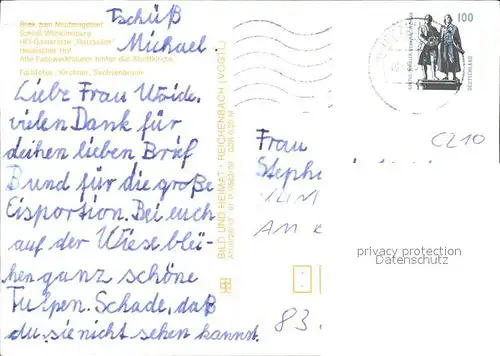 Tschüß
Michael
Blick zum Neutorgebiet
Schloß Wilhelmsburg
HO-Gaststätte
Hessischer Hof
Alte Fachwerkhäuser hinter der Stadtkirche
Farbfotos: Kirchner, Sachsenbrunn
Liebe Frau Weide,
vielen Dank für
deinen lieben Brief
B und für die große
Eisportion. Bei euch
auf der Wiese blü-
hen ganz schöne
Tulpen. Schade, daß
du sie nicht sehen kannst.
BILD UND HEIMAT · REICHENBACH (VOGTL)
100
DEUTSCHLAND
C210
Frau
Steph
AM
privacy protection
Datenschutz
83.